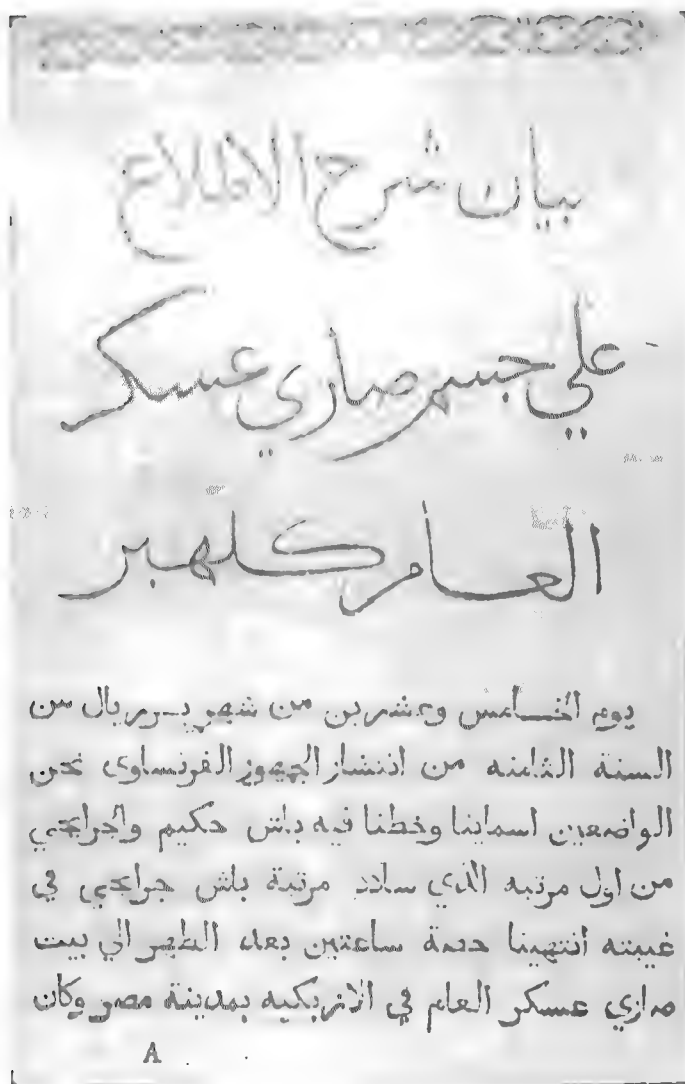 بيان شرح الاطلاع
علي جسم صاري عسكر
العام كلهبر
يوم الخامس وعشرين من شهر پرريال من
السنة الثامنه من انتشار الجمهور الفرنساوى نحن
الواضعين اسماينا وخطنا فيه باش حكيم والجرايحي
من اول مرتبه الذي سادد مرتبة باش جرايحي في
غيبته انتهينا حصة ساعتين بعد الظهر الي بيت
صاري عسكر العام في الازبكيه بمدينة مصر وكان
A